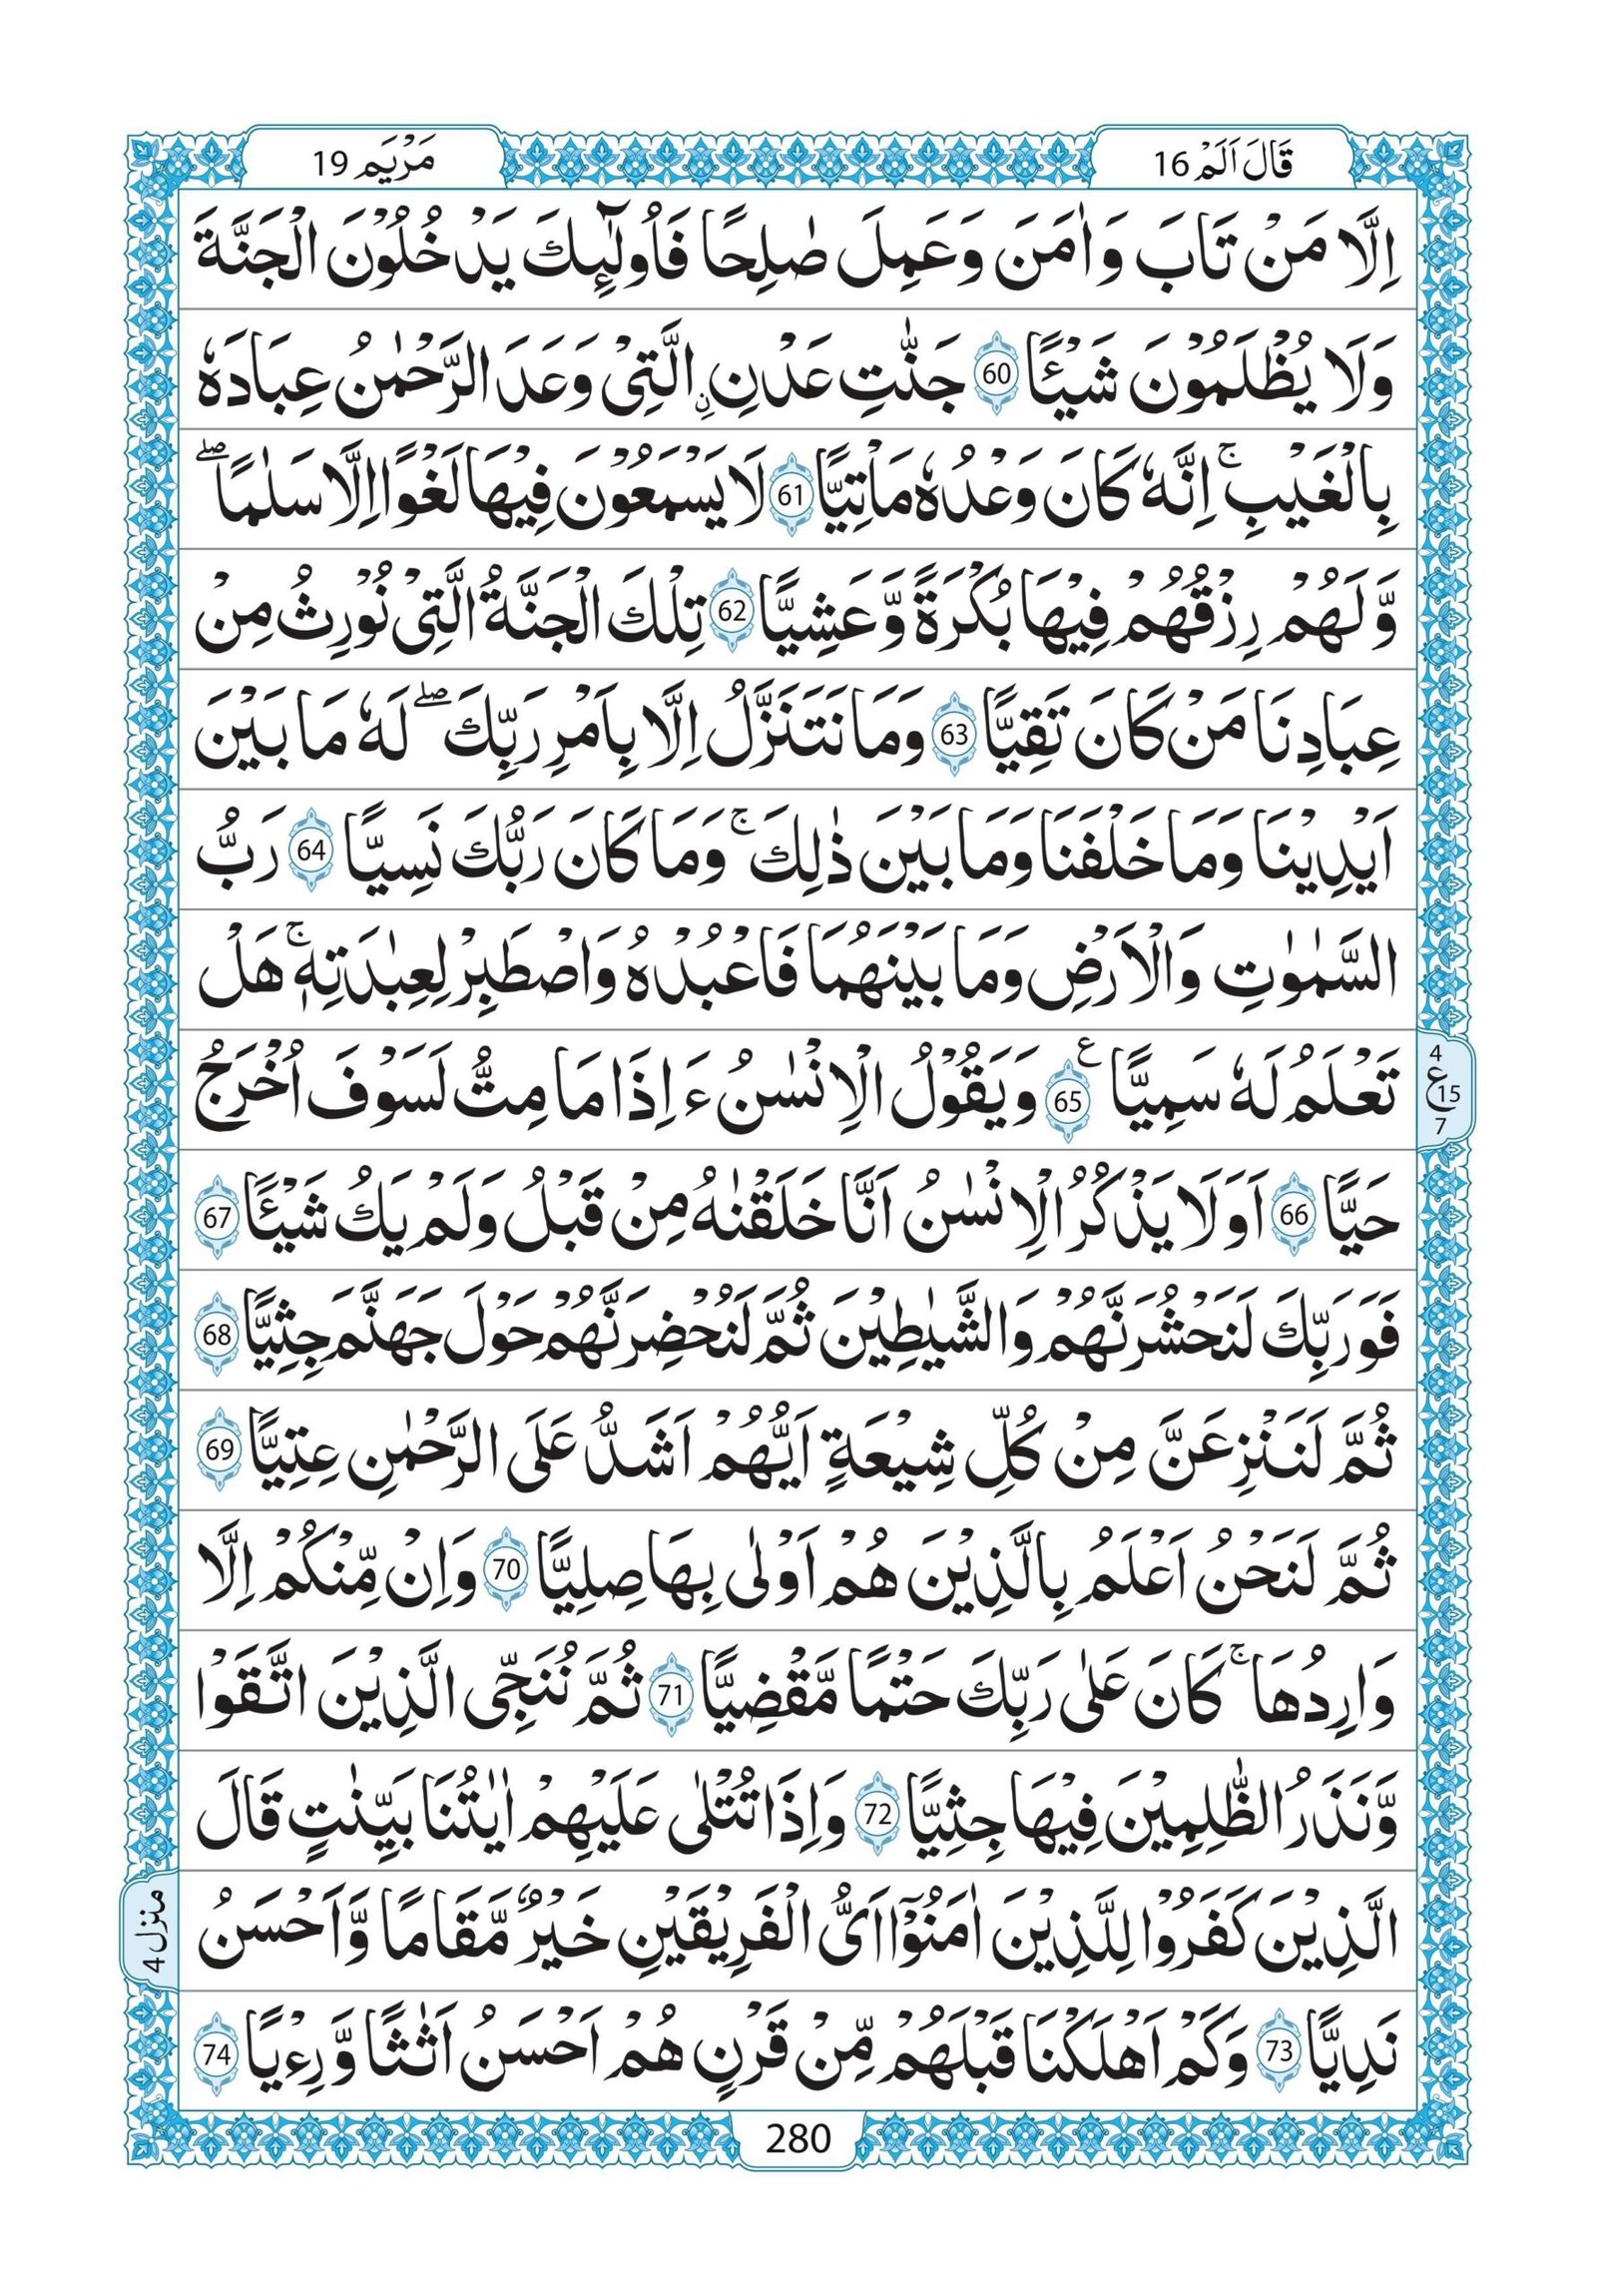 قَالَ اَلَمۡ 16
مَرۡيَم 19
اِلَّا مَنۡ تَابَ وَاٰمَنَ وَعَمِلَ صٰلِحًا فَاُولٰٓٮِٕكَ يَدۡخُلُوۡنَ الۡجَـنَّةَ
وَلَا يُظۡلَمُوۡنَ شَيۡـًٔا 60 جَنّٰتِ عَدۡنِ ۨالَّتِىۡ وَعَدَ الرَّحۡمٰنُ عِبَادَهٗ
بِالۡغَيۡبِ‌ ۚ اِنَّهٗ كَانَ وَعۡدُهٗ مَاۡتِيًّا 61 لَا يَسۡمَعُوۡنَ فِيۡهَا لَـغۡوًا اِلَّا سَلٰمًا‌ ۖ
وَّلَهُمۡ رِزۡقُهُمۡ فِيۡهَا بُكۡرَةً وَّعَشِيًّا 62 تِلۡكَ الۡجَـنَّةُ الَّتِىۡ نُوۡرِثُ مِنۡ
عِبَادِنَا مَنۡ كَانَ تَقِيًّا 63 وَمَا نَتَنَزَّلُ اِلَّا بِاَمۡرِ رَبِّكَ‌ ۖ لَهٗ مَا بَيۡنَ
اَيۡدِيۡنَا وَمَا خَلۡفَنَا وَمَا بَيۡنَ ذٰلِكَ‌ ۚ وَمَا كَانَ رَبُّكَ نَسِيًّا 64 رَبُّ
السَّمٰوٰتِ وَالۡاَرۡضِ وَمَا بَيۡنَهُمَا فَاعۡبُدۡهُ وَاصۡطَبِرۡ لِعِبٰدَتِهٖ‌ ۚ هَلۡ
تَعۡلَمُ لَهٗ سَمِيًّا ع 65 وَيَقُوۡلُ الۡاِنۡسٰنُ ءَ اِذَا مَا مِتُّ لَسَوۡفَ اُخۡرَجُ
4
ع 15
7
حَيًّا 66 اَوَلَا يَذۡكُرُ الۡاِنۡسٰنُ اَنَّا خَلَقۡنٰهُ مِنۡ قَبۡلُ وَلَمۡ يَكُ شَيۡـًٔا 67
فَوَرَبِّكَ لَـنَحۡشُرَنَّهُمۡ وَالشَّيٰطِيۡنَ ثُمَّ لَــنُحۡضِرَنَّهُمۡ حَوۡلَ جَهَـنَّمَ جِثِيًّا 68
ثُمَّ لَـنَنۡزِعَنَّ مِنۡ كُلِّ شِيۡعَةٍ اَيُّهُمۡ اَشَدُّ عَلَى الرَّحۡمٰنِ عِتِيًّا 69
ثُمَّ لَـنَحۡنُ اَعۡلَمُ بِالَّذِيۡنَ هُمۡ اَوۡلٰى بِهَا صِلِيًّا 70 وَاِنۡ مِّنۡكُمۡ اِلَّا
وَارِدُهَا‌ ۚ كَانَ عَلٰى رَبِّكَ حَتۡمًا مَّقۡضِيًّا 71 ثُمَّ نُـنَجِّى الَّذِيۡنَ اتَّقَوْا
وَّنَذَرُ الظّٰلِمِيۡنَ فِيۡهَا جِثِيًّا 72 وَاِذَا تُتۡلٰى عَلَيۡهِمۡ اٰيٰتُنَا بَيِّنٰتٍ قَالَ
الَّذِيۡنَ كَفَرُوۡا لِلَّذِيۡنَ اٰمَنُوۡۤا اَىُّ الۡفَرِيۡقَيۡنِ خَيۡرٌ مَّقَامًا وَّاَحۡسَنُ
منزل 4
نَدِيًّا 73 وَكَمۡ اَهۡلَكۡنَا قَبۡلَهُمۡ مِّنۡ قَرۡنٍ هُمۡ اَحۡسَنُ اَثٰثًا وَّرِءۡيًا 74
280